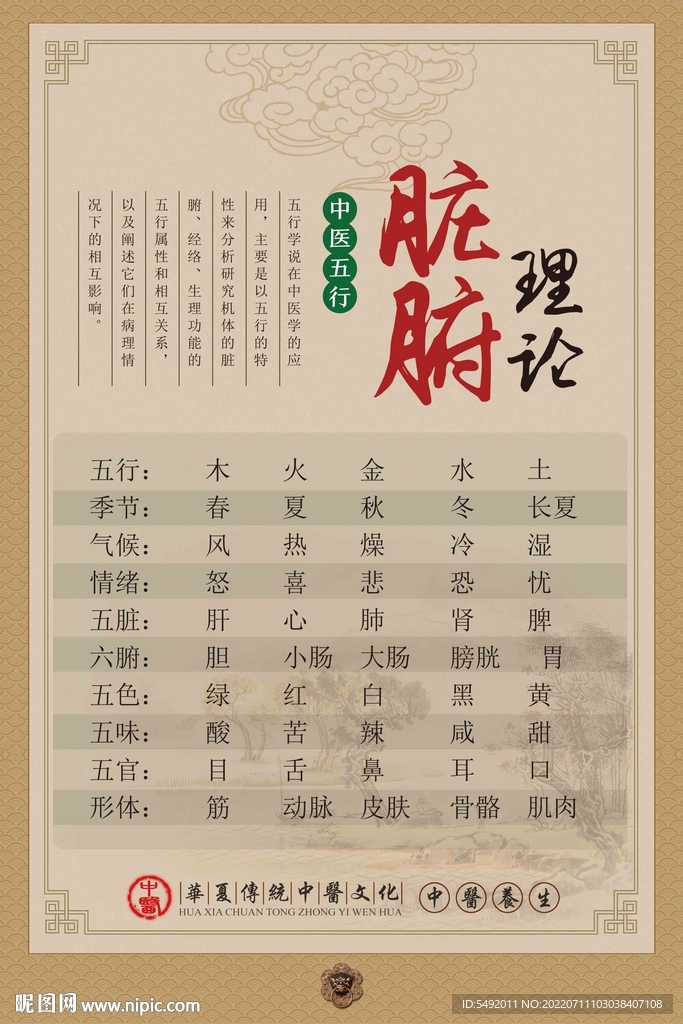 脏腑
理论
中医五行
五行学说在中医学的应
用，主要是以五行的特
性来分析研究机体的脏
腑、经络、生理功能的
五行属性和相互关系，
以及阐述它们在病理情
况下的相互影响。
五行： 木 火 金 水 土
季节： 春 夏 秋 冬 长夏
气候： 风 热 燥 冷 湿
情绪： 怒 喜 悲 恐 忧
五脏： 肝 心 肺 肾 脾
六腑： 胆 小肠 大肠 膀胱 胃
五色： 绿 红 白 黑 黄
五味： 酸 苦 辣 咸 甜
五官： 目 舌 鼻 耳 口
形体： 筋 动脉 皮肤 骨骼 肌肉
中醫
華夏傳統中醫文化
HUA XIA CHUAN TONG ZHONG YI WEN HUA
中醫養生
昵图网 www.nipic.com
ID:5492011 NO:20220711103038407108